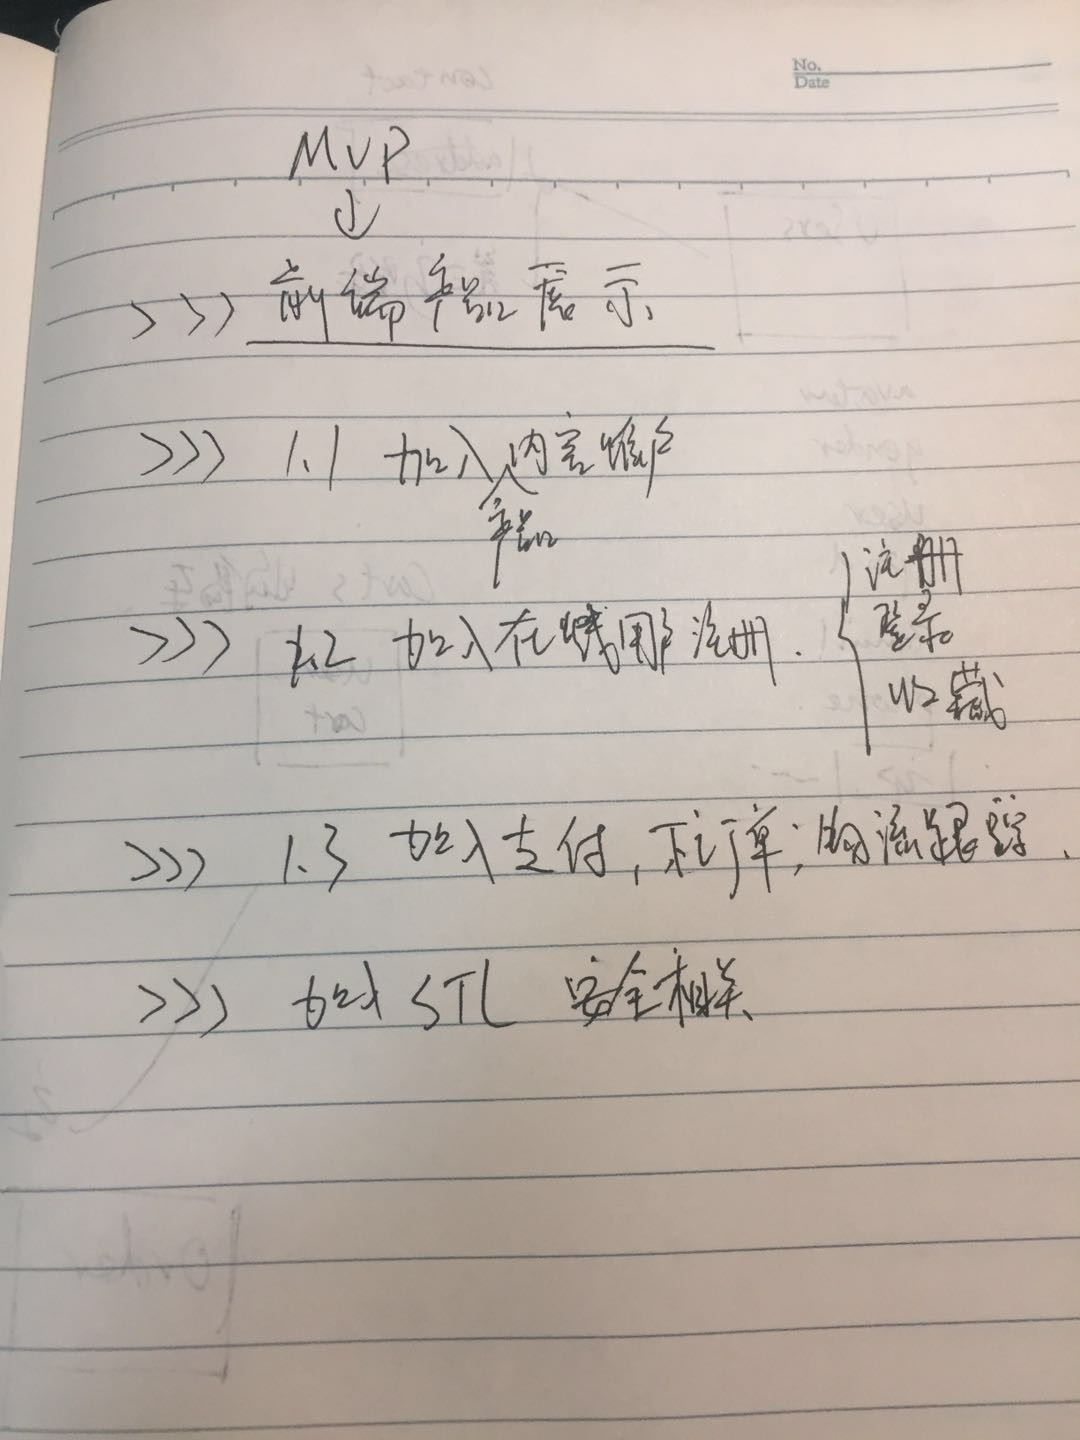 No.
Date
MVP
↓
>>> 前端产品展示
>>> 1.1 加入内容维护
产品
>>> 1.2 加入在线用户注册.
注册
登录
收藏
>>> 1.3 加入支付, 下订单; 物流跟踪.
>>> 加入 STL 安全相关